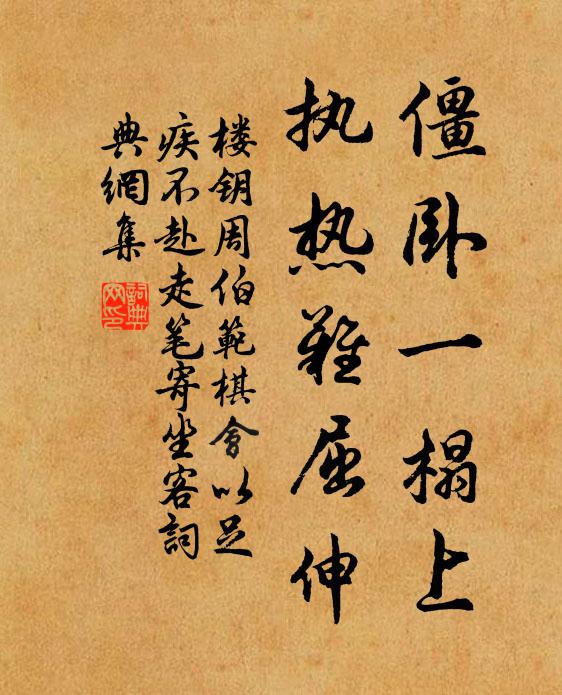 僵卧一榻上
执热难屈伸
楼钥周伯範棋會以足
疾不赴走笔寄坐客詞
典網集
詞典网印